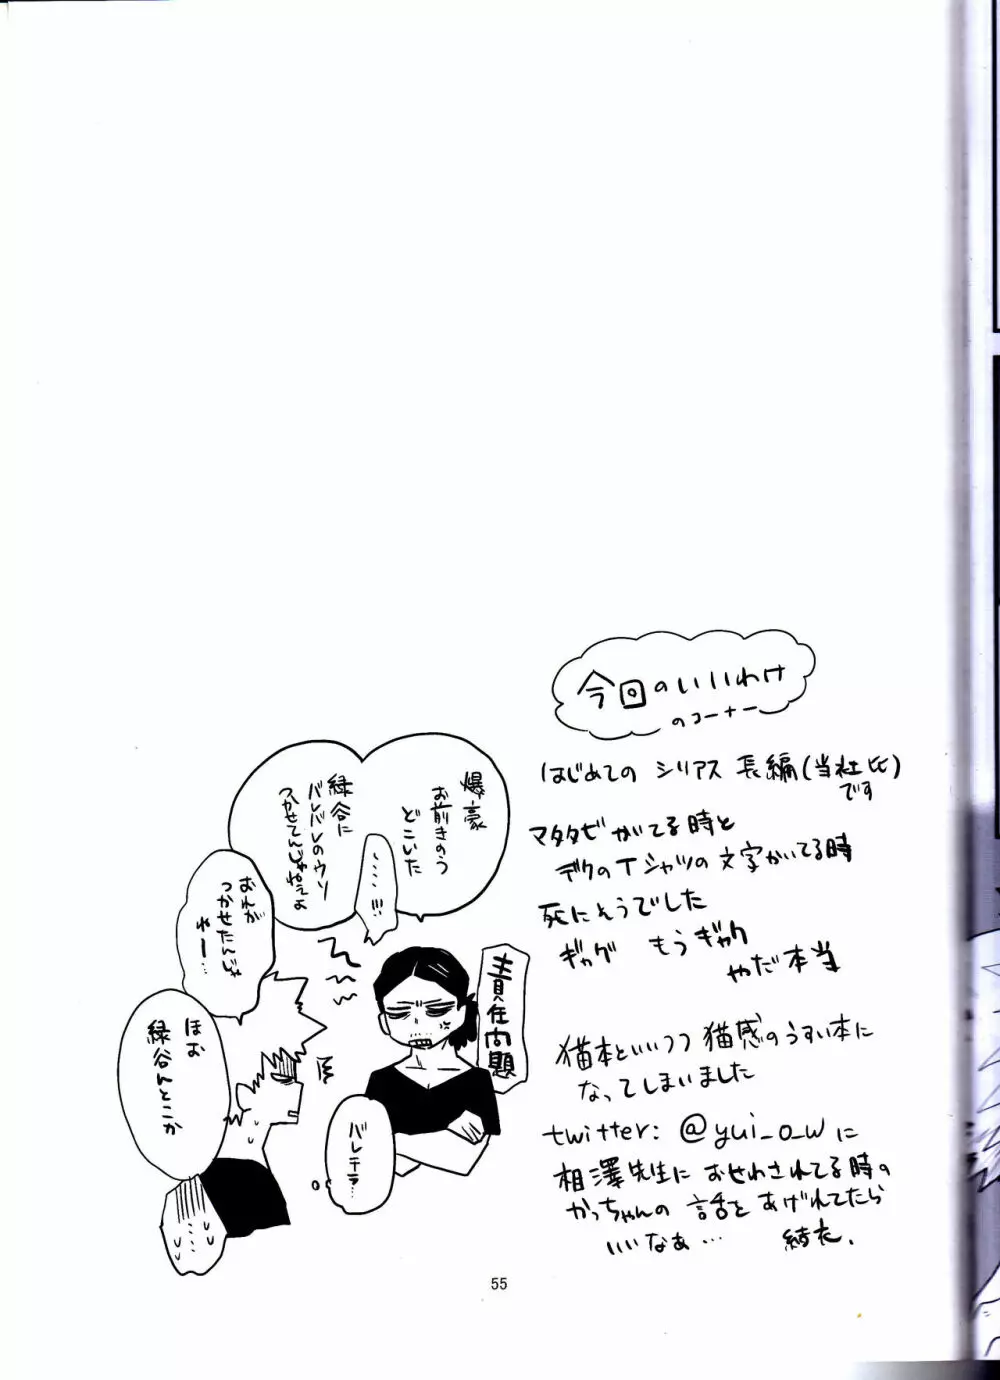 今回のいいわけ
のコーナー
はじめての シリアス 長編(当社比)
です
マタタビ がてる時と
デクのTシャツの文字かいてる時
死にそうでした
ギャグ もうギャグ
やだ本当
猫本といいつつ猫感のうすい本に
なってしまいました
twitter: @yui_o_wに
相澤先生に おせわされてる時の
かっちゃんの 話を あげれてたら
いいなぁ… 結衣.
爆豪
お前きのう
どこいた
……!!!
緑谷に
バレバレのウソ
つかせてんじゃねぇよ
おれが
つかせたんじゃ
ねー…
責任問題
ほお
緑谷んとこか
バレテラ…
……
55